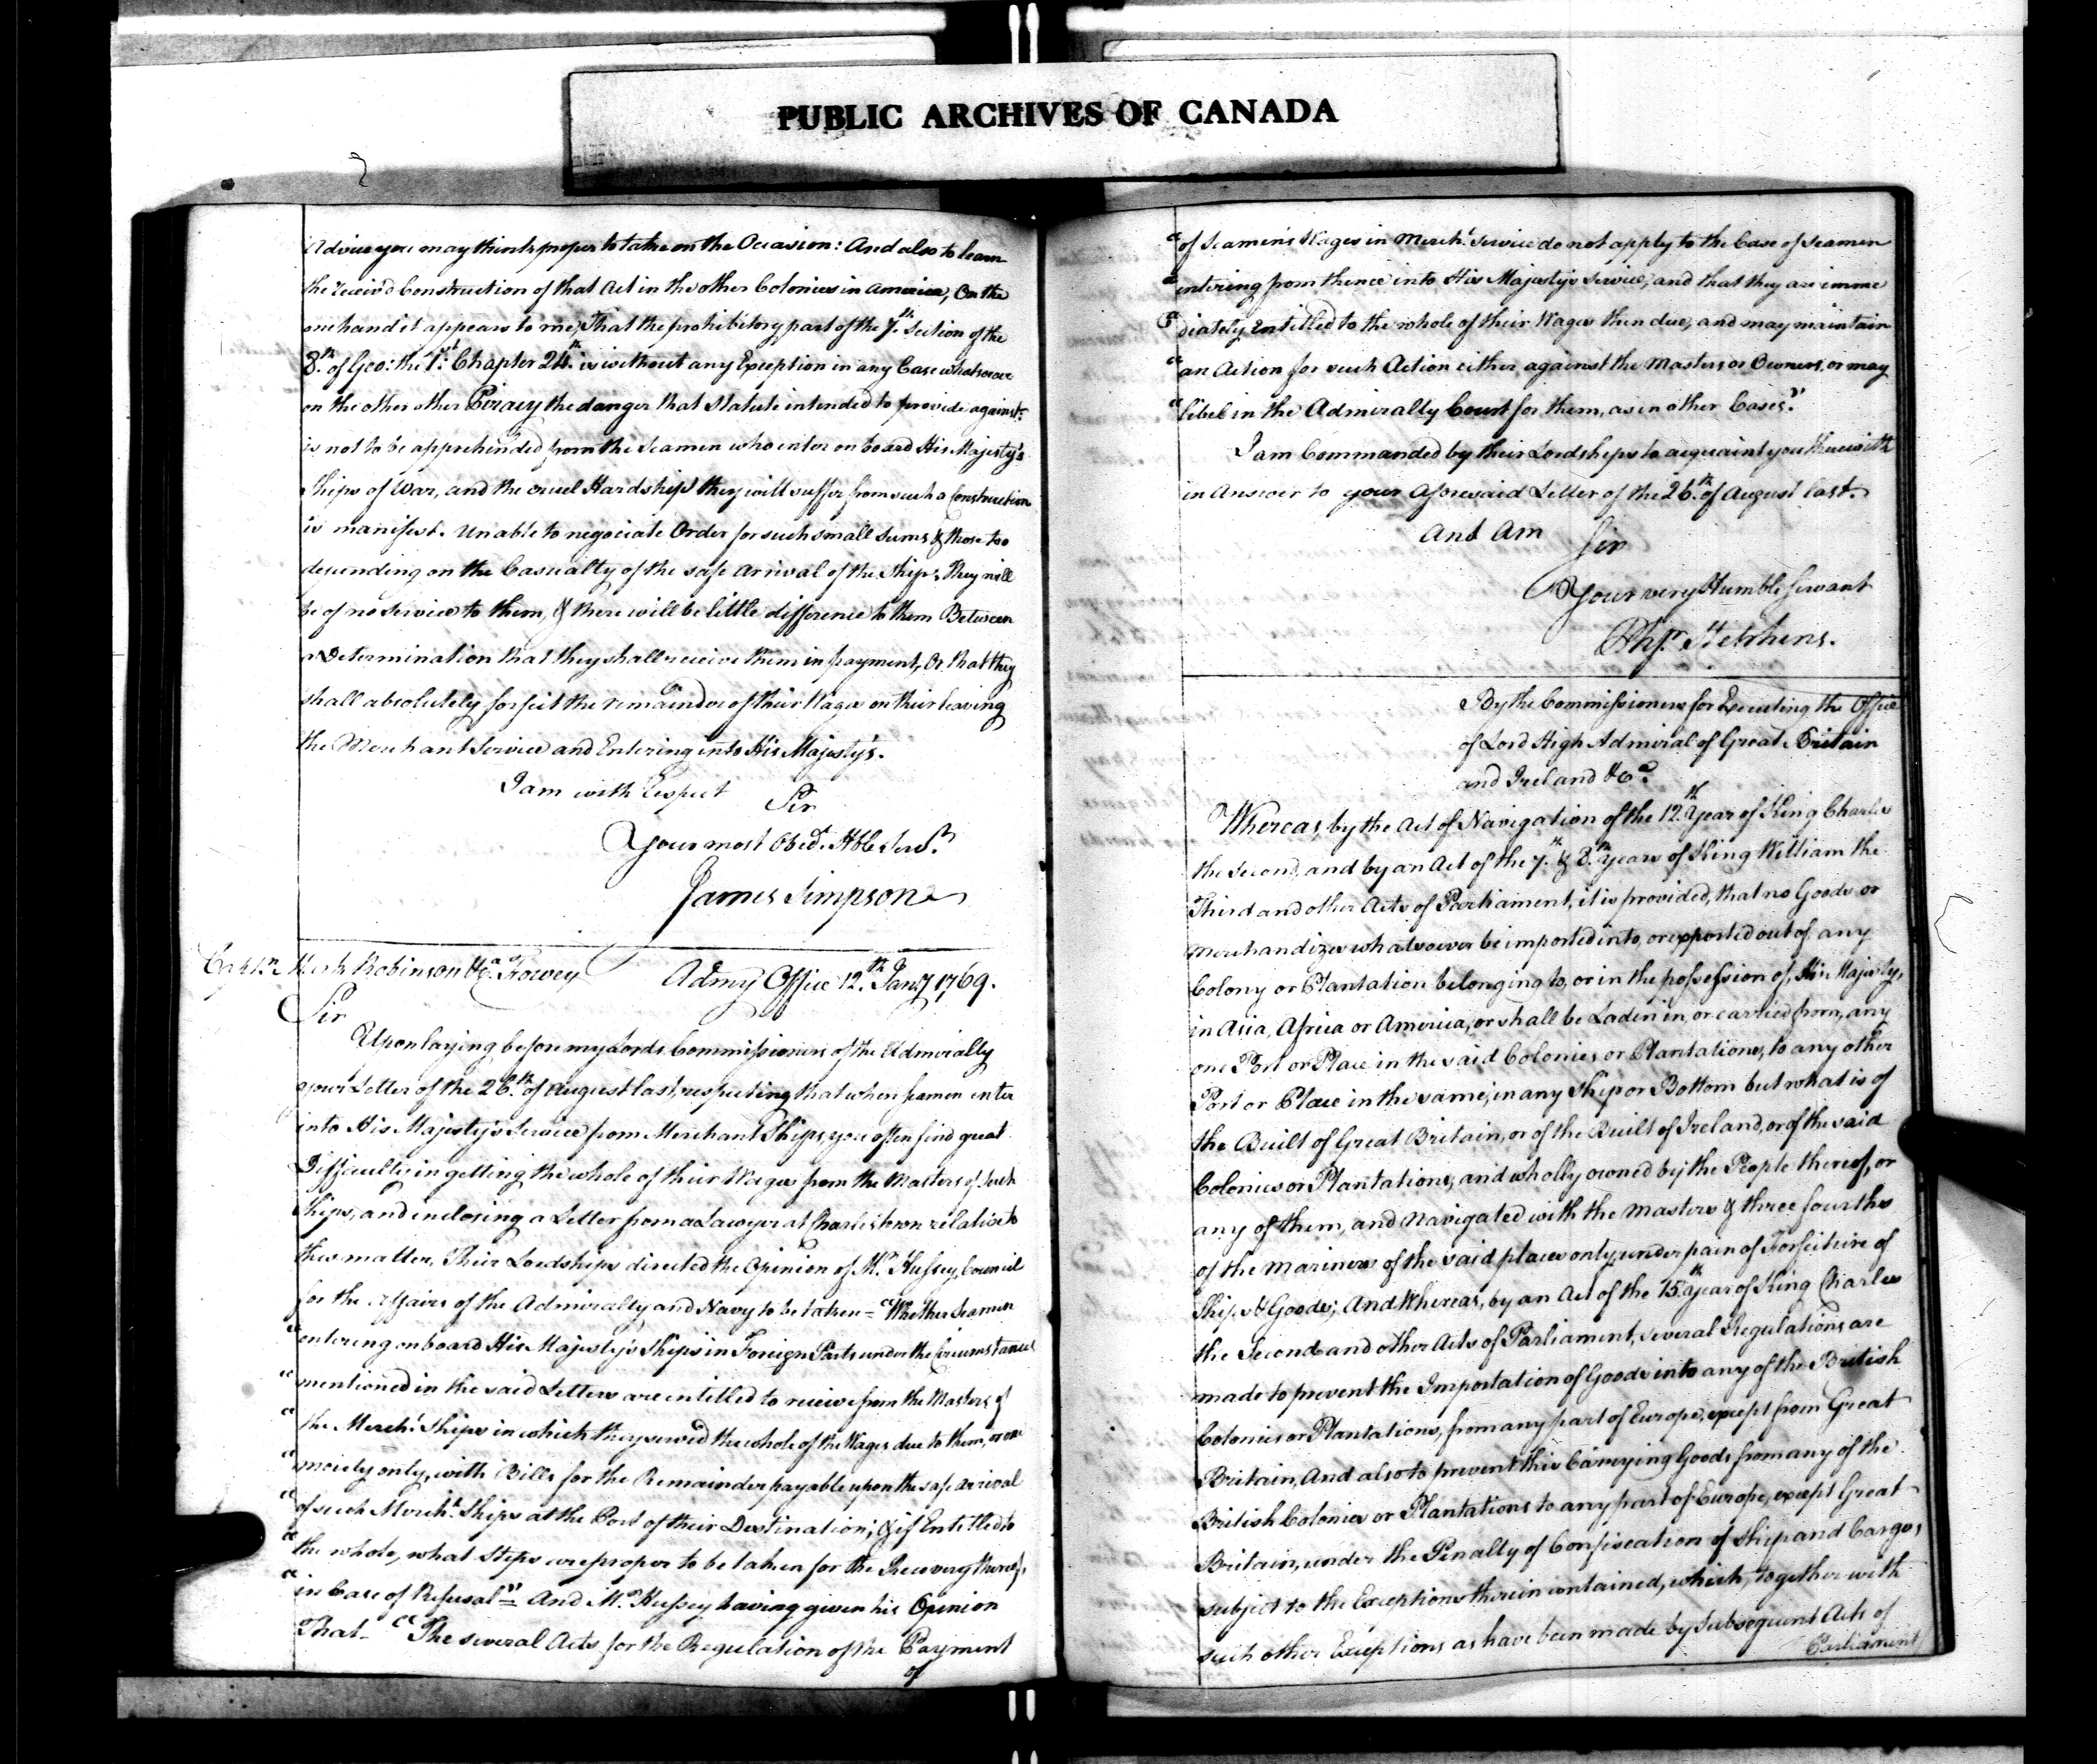 PUBLIC ARCHIVES OF CANADA
Advice you may think proper to take on the Occasion: And also to learn
the receiv'd Construction of that Act in the other Colonies in America, On the
one hand it appears to me, That the prohibitory part of the 7th. Section of the
8th. of Geo: the 1st. Chapter 24th. is without any Exception in any Case whatsoever
on the other other Piracy the danger that Statute intended to provide against
is not to be apprehended from the Seamen who enter on board His Majesty's
Ships of War, and the cruel Hardships they will suffer from such a Construction
is manifest. Unable to negociate Order for such small Sums & those too
depending on the Casualty of the safe Arrival of the Ship, They will
be of no Service to them, & there will be little difference to them Between
a Determination that they shall receive them in payment, Or that they
shall absolutely forfeit the remainder of their Wages on their leaving
the Merchant Service and Entering into His Majesty's.
I am with Respect Sir
Your most Obedt. Hble Servt.
James Simpson
Captn. Mark Robinson &ca. Fowey Admy. Office 12th. Jany. 1769.
Sir
Upon laying before my Lords Commissioners of the Admiralty
your Letter of the 26th. of August last, respecting that when seamen enter
into His Majesty's Service from Merchant Ships, you often find great
Difficulties in getting the whole of their Wages from the Masters of such
Ships, and inclosing a Letter from a Lawyer at Charlestown relative to
this matter, Their Lordships directed the Opinion of Mr. Hussey, Council
for the Affairs of the Admiralty and Navy to be taken = "Whether Seamen
"entering on board His Majesty's Ships in Foreign Parts under the Circumstances
"mentioned in the said Letters are entitled to receive from the Masters of
"the Mercht. Ships in which they served the whole of the Wages due to them, or one
"moiety only, with Bills for the Remainder payable upon the safe arrival
"of such Mercht. Ships at the Port of their Destination; & if Entitled to
"the whole, what Steps are proper to be taken for the Recovery thereof,
"in Case of Refusal" = And Mr. Hussey having given his Opinion
That - "The several Acts for the Regulation of the Payment
of
"of Seamen's Wages in Mercht. Service do not apply to the Case of Seamen
"entering from thence into His Majesty's Service, and that they are imme
"diately Entitled to the whole of their Wages then due, and may maintain
"an Action for such Action either against the Masters or Owners, or may
"libel in the Admiralty Court for them, as in other Cases."
I am Commanded by their Lordships to acquaint you therewith
in Answer to your Aforesaid Letter of the 26th. of August last.
And Am Sir
Your very Humble Servant
Php. Stephens.
By the Commissioners for Executing the Office
of Lord High Admiral of Great Britain
and Ireland &ca.
Whereas, by the Act of Navigation of the 12th. Year of King Charles
the Second, and by an Act of the 7th. & 8th. Years of King William the
Third and other Acts of Parliament, it is provided, that no Goods or
Merchandizes whatsoever be imported into, or exported out of, any
Colony or Plantation belonging to, or in the possession of, His Majesty,
in Asia, Africa or America, or shall be Laden in, or carried from, any
one Port or Place in the said Colonies or Plantations, to any other
Port or Place in the same, in any Ship or Bottom but what is of
the Built of Great Britain, or of the Built of Ireland, or of the said
Colonies or Plantations, and wholly owned by the People thereof, or
any of them, and Navigated with the Masters & three fourths
of the Mariners of the said places only, under pain of Forfeiture of
Ships & Goods; And Whereas, by an Act of the 15th. Year of King Charles
the Second and other Acts of Parliament, several Regulations are
made to prevent the Importation of Goods into any of the British
Colonies or Plantations, from any part of Europe, except from Great
Britain, And also to prevent this Carrying Goods from any of the
British Colonies or Plantations to any part of Europe, except Great
Britain, under the Penalty of Confiscation of Ship and Cargo,
subject to the Exceptions therein contained, which, together with
such other Exceptions as have been made by Subsequent Acts of
Parliament